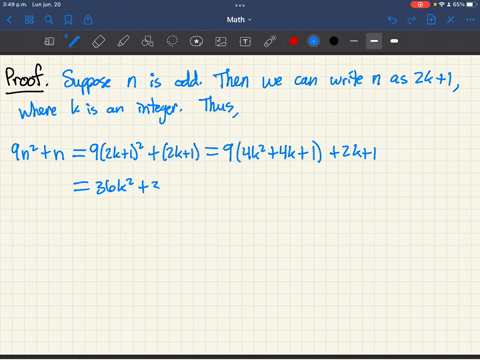 3:49 p.m. Lun jun. 20
65%
Math
Proof. Suppose n is odd. Then we can write n as 2k+1,
where k is an integer. Thus,
9n² + n = 9(2k+1)² + (2k+1) = 9(4k² + 4k + 1) + 2k + 1
= 36k² + 3